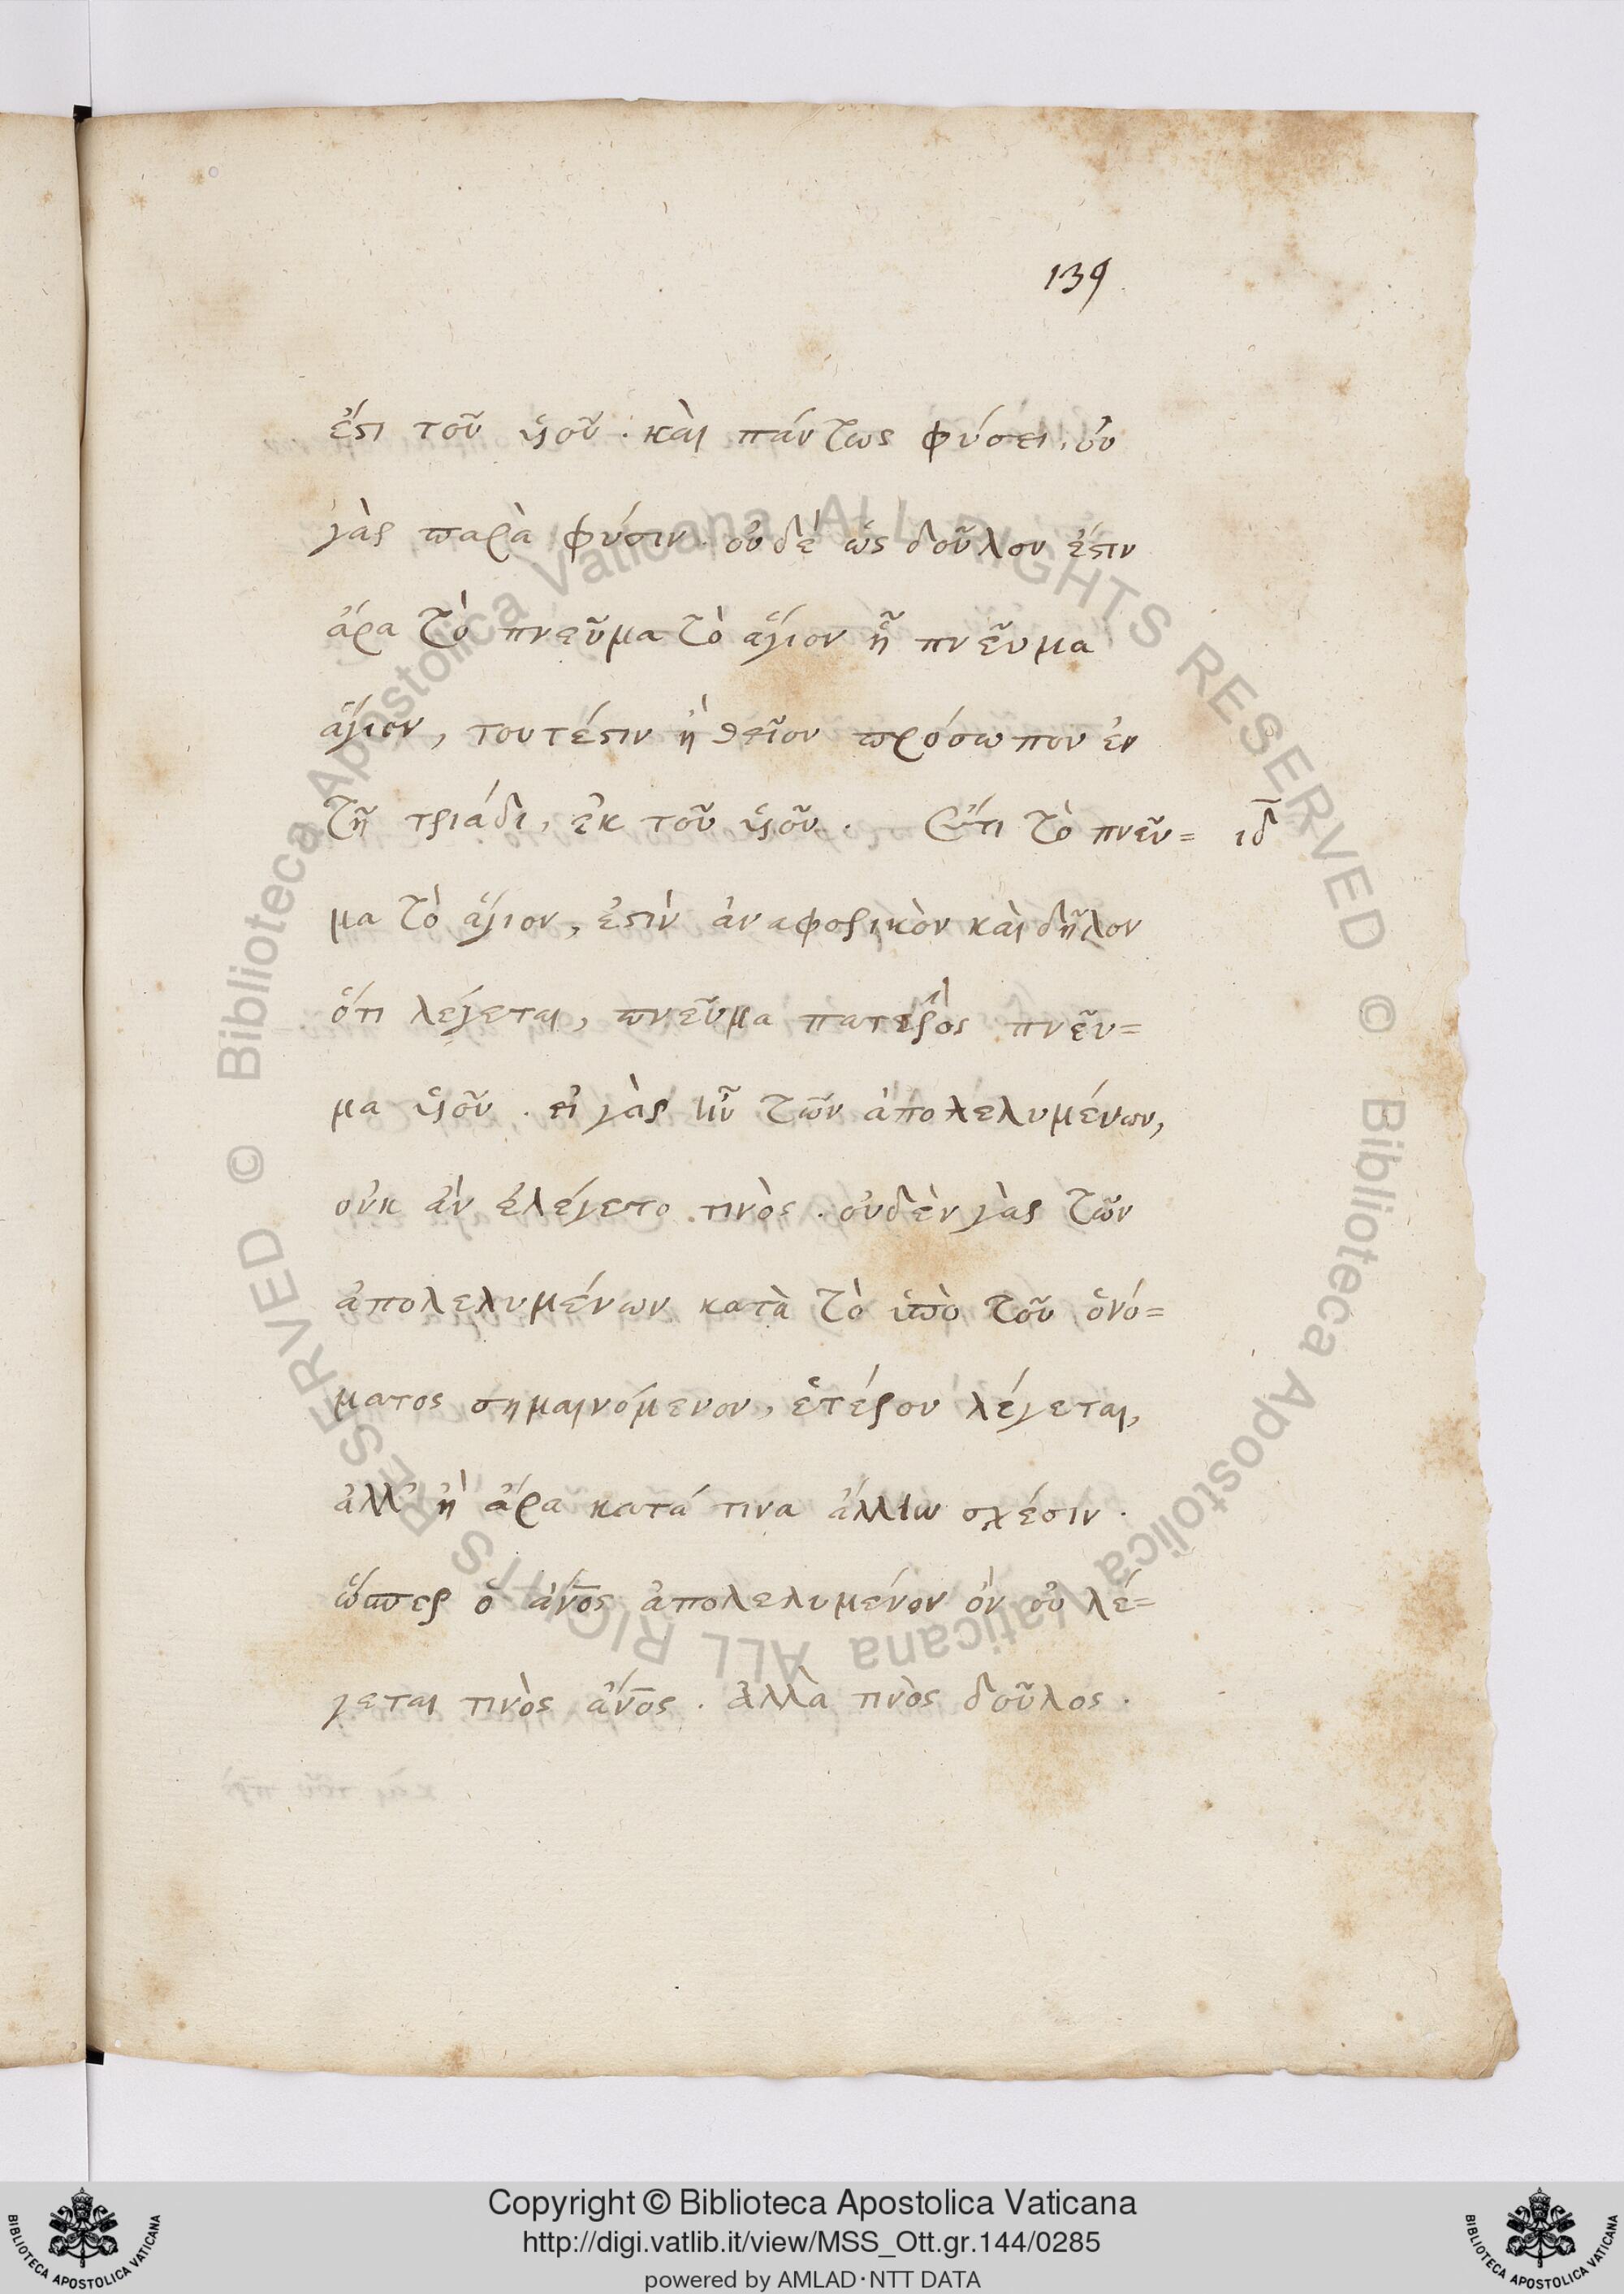 139
ἐστι τοῦ υἱοῦ. καὶ πάντως φύσει. οὐ
γὰρ παρὰ φύσιν. οὐδὲ ὡς δοῦλον ἐστιν
ἄρα τὸ πνεῦμα τὸ ἅγιον ᾗ πνεῦμα
ἅγιον, τουτέστιν ᾗ θεῖον πρόσωπον ἐν
τῇ τριάδι, ἐκ τοῦ υἱοῦ. Ἔτι τὸ πνεῦ= ιδ
μα τὸ ἅγιον, ἐστὶν ἀναφορικὸν καὶ δῆλον
ὅτι λέγεται, πνεῦμα πατρὸς πνεῦ=
μα υἱοῦ. εἰ γὰρ ἦν τῶν ἀπολελυμένων,
οὐκ ἂν ἐλέγετο τινὸς. οὐδὲν γὰρ τῶν
ἀπολελυμένων κατὰ τὸ ὑπὸ τοῦ ὀνό=
ματος σημαινόμενον, ἑτέρου λέγεται,
ἀλλ' ἢ ἄρα κατά τινα ἄλλην σχέσιν.
ὥσπερ ὁ ἄνος ἀπολελυμένον ὂν οὐ λέ=
γεται τινὸς ἄνος. ἀλλὰ τινὸς δοῦλος.
© Biblioteca Apostolica Vaticana ALL RIGHTS RESERVED © Biblioteca Apostolica Vaticana ALL RIGHTS RESERVED
Copyright © Biblioteca Apostolica Vaticana
http://digi.vatlib.it/view/MSS_Ott.gr.144/0285
powered by AMLAD·NTT DATA
BIBLIOTECA APOSTOLICA VATICANA
BIBLIOTECA APOSTOLICA VATICANA